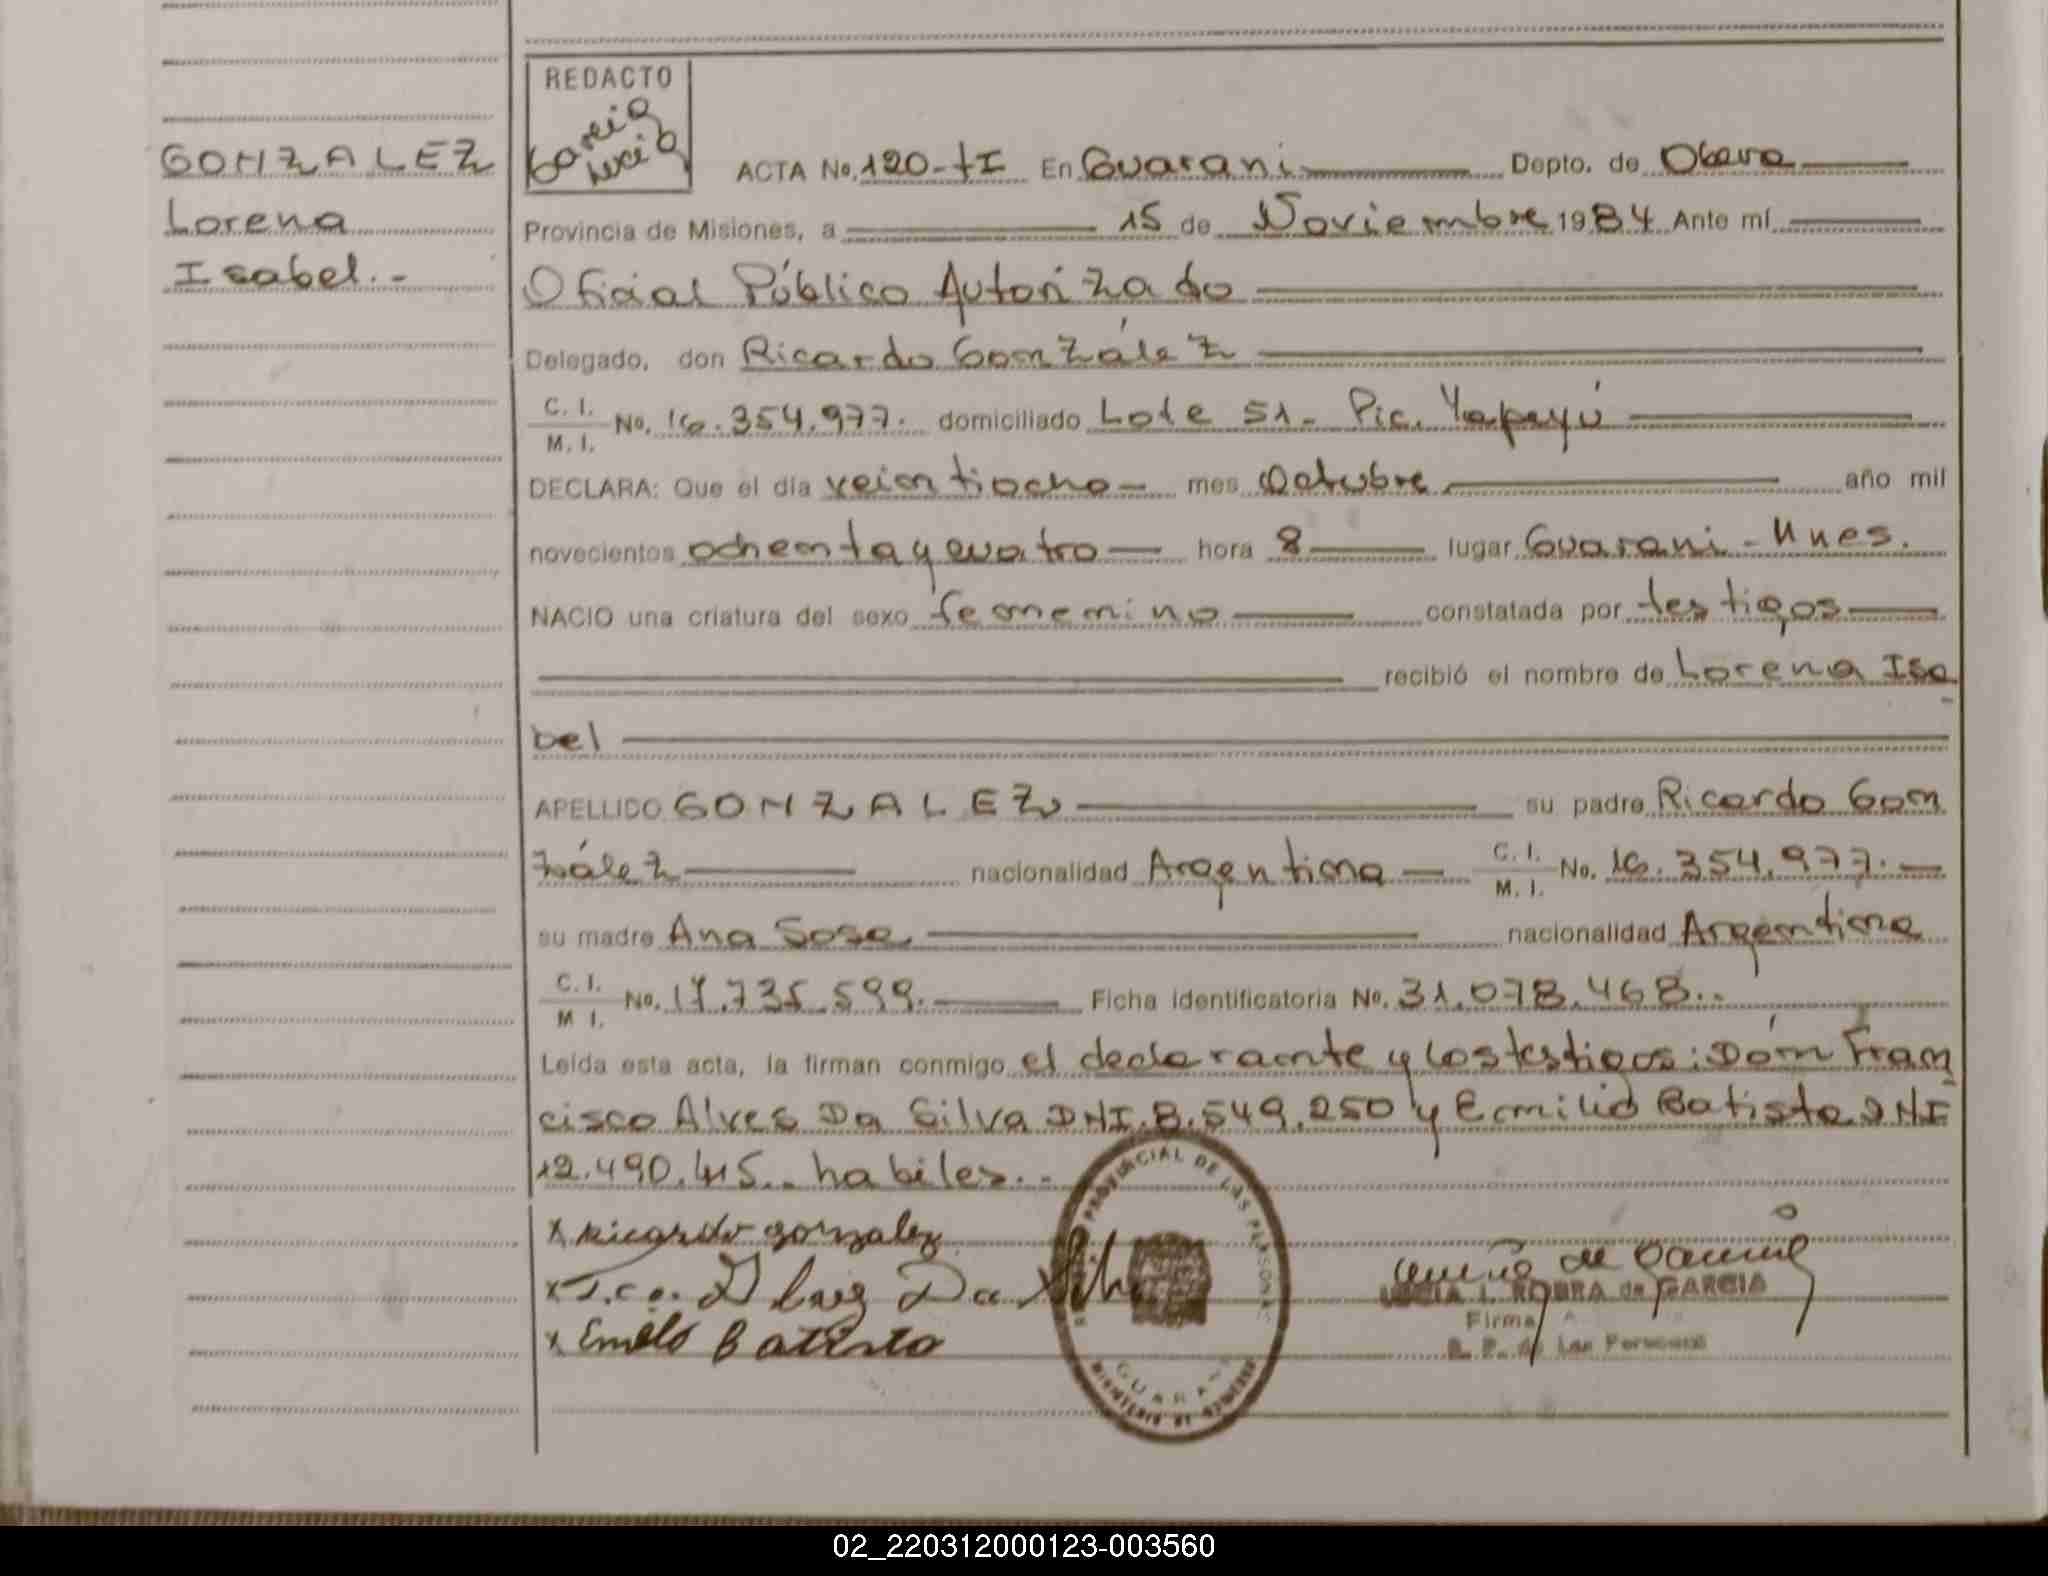 REDACTO
Garcia
Lucia
GONZALEZ
Lorena
Isabel.-
ACTA No. 120-tI En Guarani Depto. de Obera
Provincia de Misiones, a 15 de Noviembre 1984 Ante mí
Oficial Público Autorizado
Delegado, don Ricardo González
C. I. / M. I. No. 16.354.977. domiciliado Lote 51- Pic. Yapeyú
DECLARA: Que el día veintiocho mes Octubre año mil
novecientos ochenta y cuatro hora 8 lugar Guarani - Mnes.
NACIO una criatura del sexo femenino constatada por testigos
recibió el nombre de Lorena Isa
bel
APELLIDO GONZALEZ su padre Ricardo Gon
zález nacionalidad Argentina C. I. / M. I. No. 16.354.977.-
su madre Ana Sosa nacionalidad Argentina
C. I. / M I. No. 17.735.599. Ficha identificatoria No. 31.078.468..
Leída esta acta, la firman conmigo el declarante y los testigos: Dón Fran
cisco Alves Da Silva DNI. 8.549.250 y Emilio Batista DNI
12.490.415.. habiles..
x Ricardo gonzalez
x Da Silva
x Emilo Batista
PROVINCIAL DE LAS PERSONAS
GUARANI
MINISTERIO DE GOBIERNO
LUCIA I. ROBRA de GARCIA
Firma
R. P. de Las Personas
02_220312000123-003560